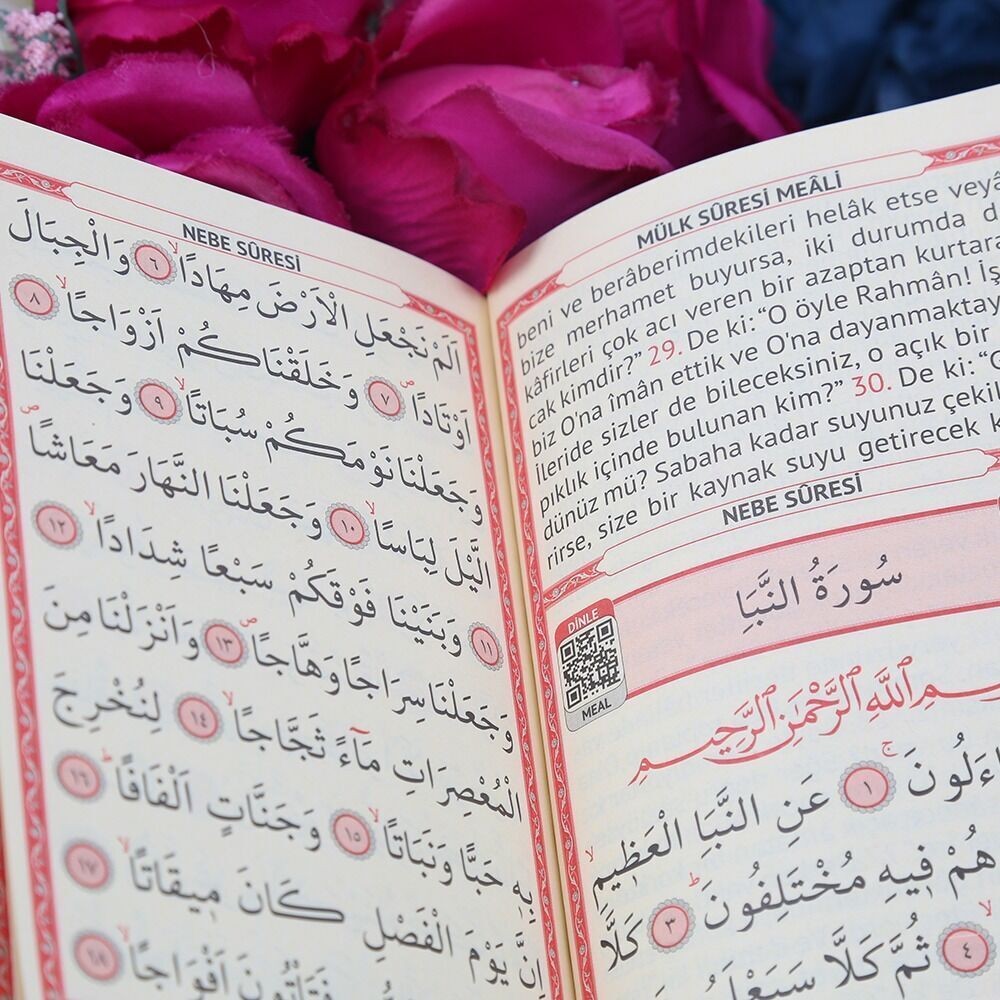 MÜLK SÛRESİ MEÂLİ
beni ve berâberimdekileri helâk etse veyâ
bize merhamet buyursa, iki durumda d
kâfirleri çok acı veren bir azaptan kurtara
cak kimdir?” 29. De ki: “O öyle Rahmân! İş
biz O'na îmân ettik ve O'na dayanmaktay
ileride sizler de bileceksiniz, o açık bir
pıklık içinde bulunan kim?” 30. De ki: “
dünüz mü? Sabaha kadar suyunuz çekil
rirse, size bir kaynak suyu getirecek k
NEBE SÛRESİ
سُورَةُ النَّبَاِ
DİNLE
MEAL
ـمِ ٱللَّهِ ٱلرَّحْمَٰنِ ٱلرَّحِيمِ
اءَلُونَۚ ﴿١﴾ عَنِ النَّبَاِ الْعَظ۪يمِۙ
هُمْ ف۪يهِ مُخْتَلِفُونَۜ ﴿٣﴾ كَلَّا
﴿٤﴾ ثُمَّ كَلَّا سَيَعْلَمُ
NEBE SÛRESİ
اَلَمْ نَجْعَلِ الْاَرْضَ مِهَادًاۙ ﴿٦﴾ وَالْجِبَالَ
اَوْتَادًاۖ ﴿٧﴾ وَخَلَقْنَاكُمْ اَزْوَاجًاۙ ﴿٨﴾
وَجَعَلْنَا نَوْمَكُمْ سُبَاتًاۙ ﴿٩﴾ وَجَعَلْنَا
الَّيْلَ لِبَاسًاۙ ﴿١٠﴾ وَجَعَلْنَا النَّهَارَ مَعَاشًاۖ
﴿١١﴾ وَبَنَيْنَا فَوْقَكُمْ سَبْعًا شِدَادًاۙ ﴿١٢﴾
وَجَعَلْنَا سِرَاجًا وَهَّاجًاۖ ﴿١٣﴾ وَاَنْزَلْنَا مِنَ
الْمُعْصِرَاتِ مَٓاءً ثَجَّاجًاۙ ﴿١٤﴾ لِنُخْرِجَ
بِه۪ حَبًّا وَنَبَاتًاۙ ﴿١٥﴾ وَجَنَّاتٍ اَلْفَافًاۜ ﴿١٦﴾
اِنَّ يَوْمَ الْفَصْلِ كَانَ م۪يقَاتًاۙ ﴿١٧﴾
فَتَأْتُونَ اَفْوَاجًاۙ ﴿١٨﴾